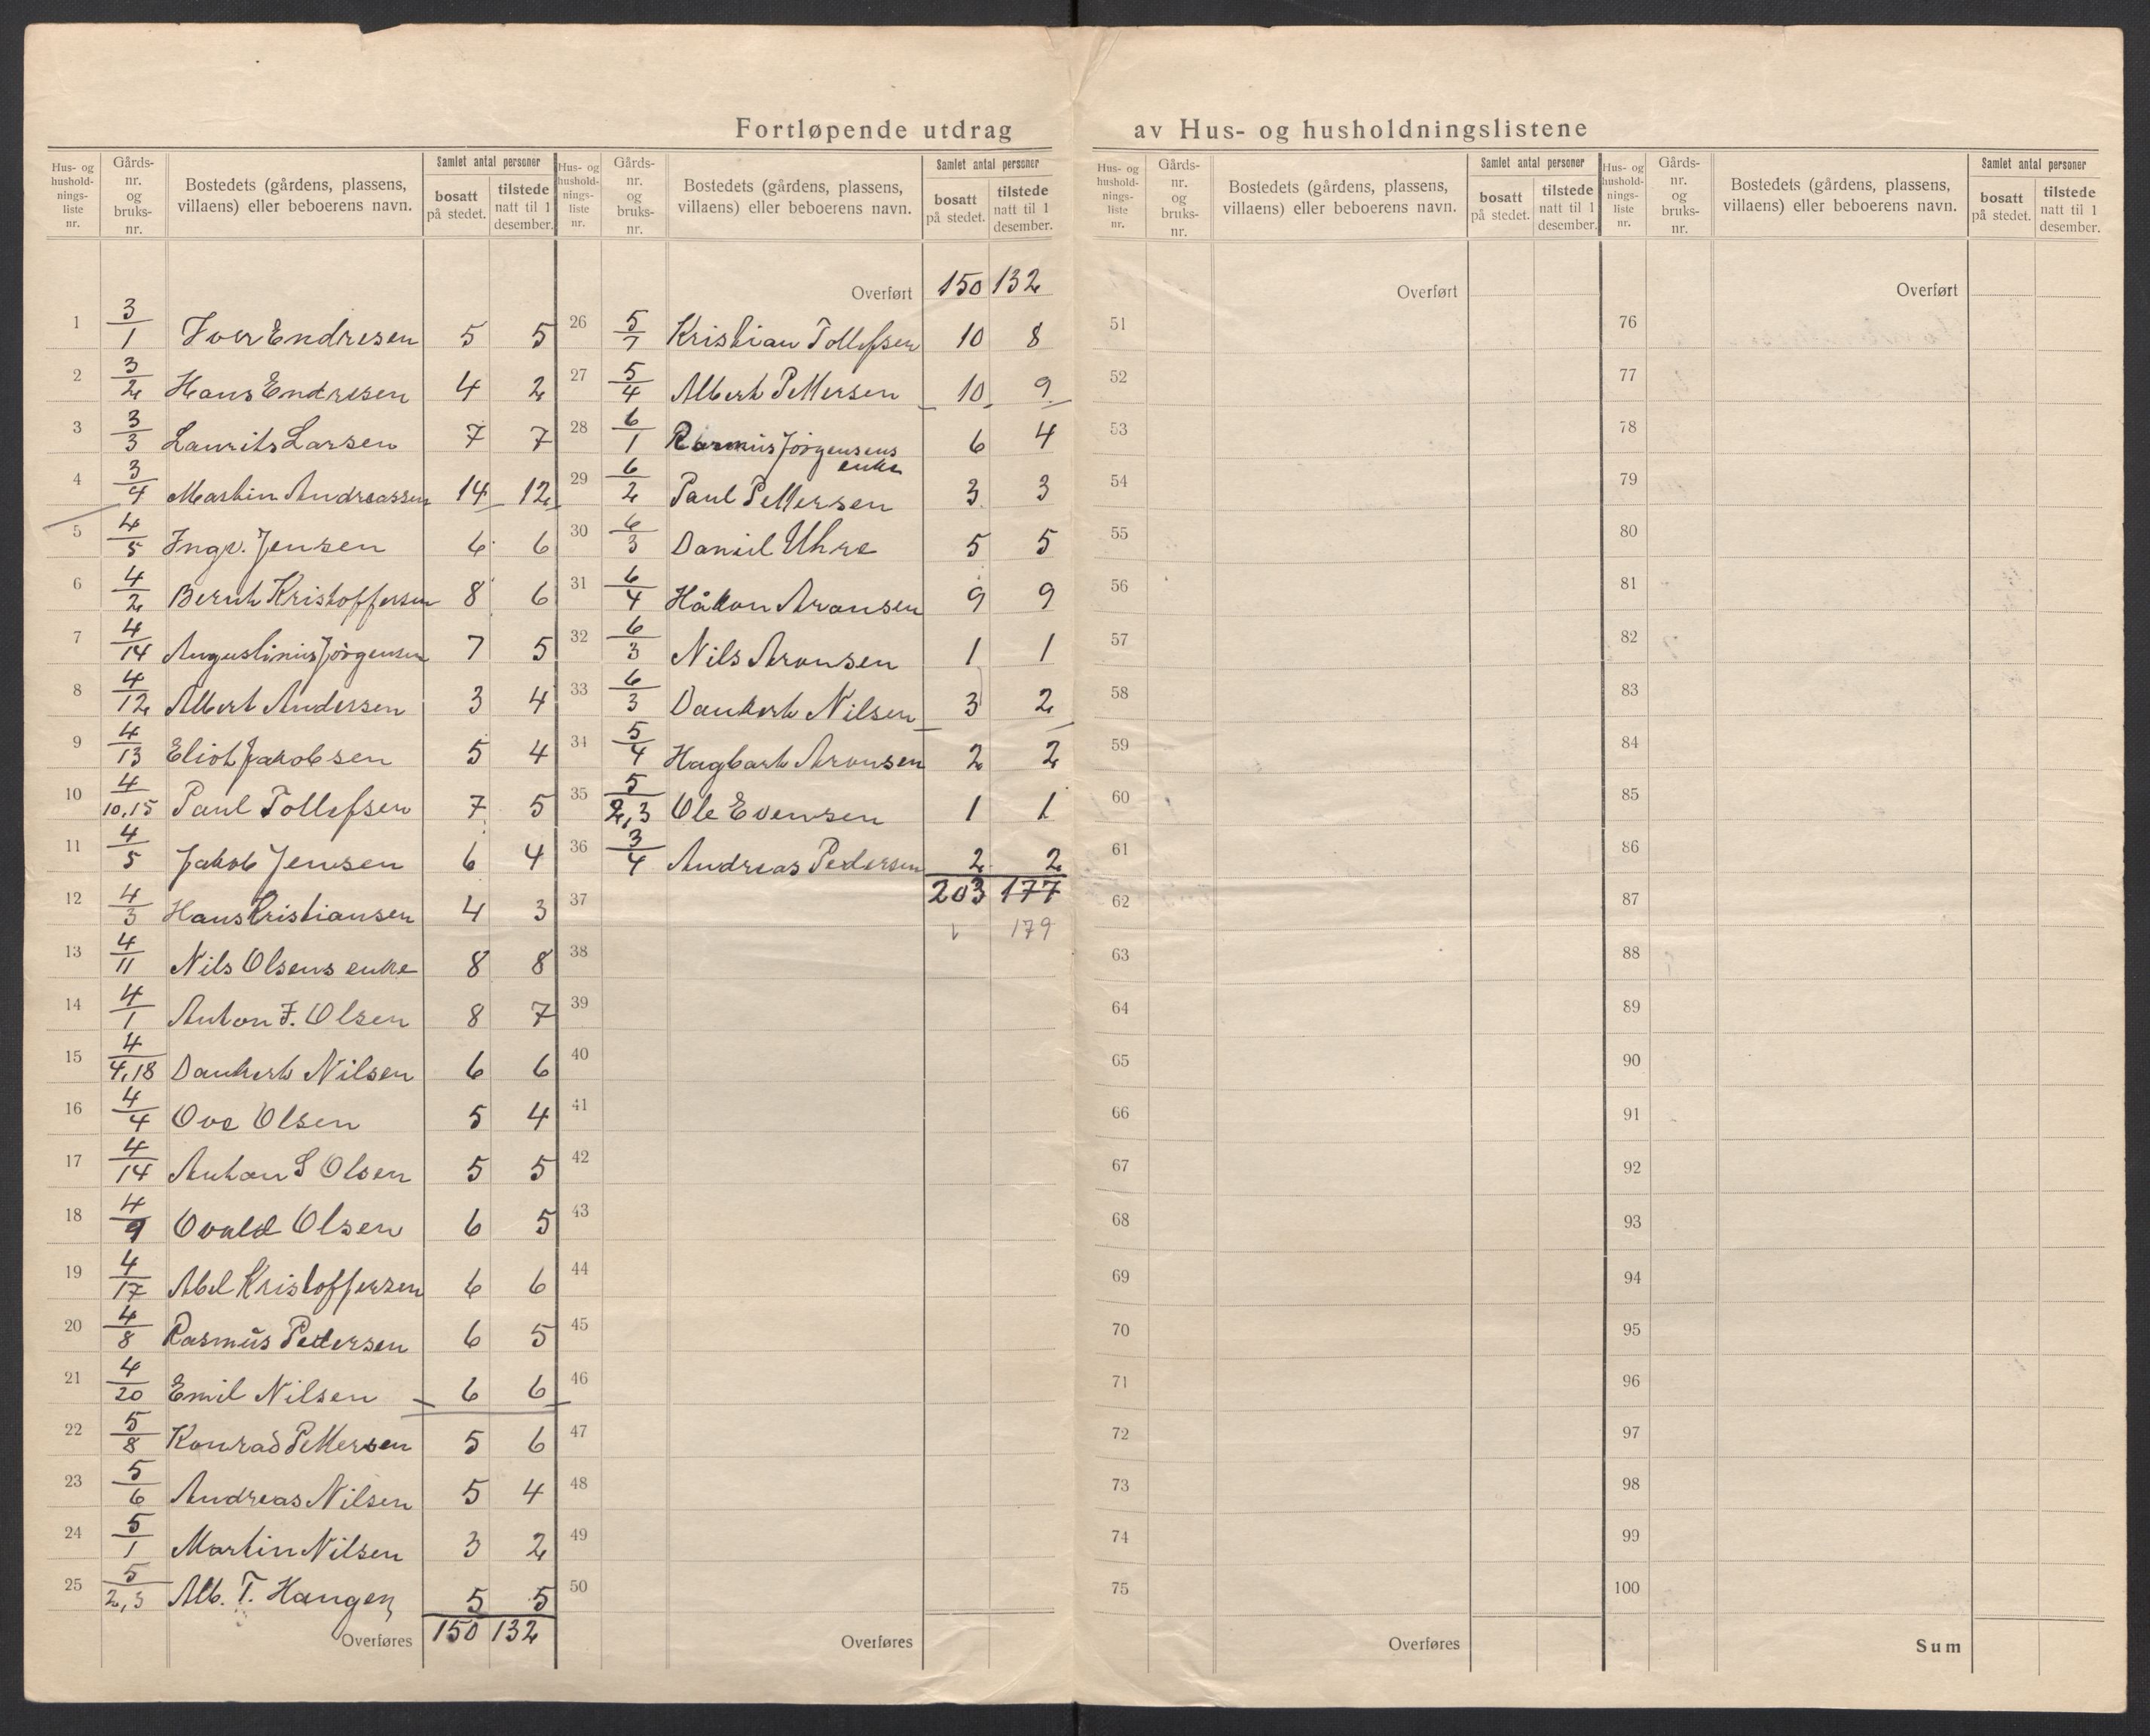 Fortløpende utdrag av Hus- og husholdningslistene
Hus- og hushold-nings-liste nr. Gårds-nr. og bruks-nr. Bostedets (gårdens, plassens, villaens) eller beboerens navn. Samlet antal personer bosatt på stedet. tilstede natt til 1 desember.
1 3/1 Iver Endresen 5 5
2 3/2 Hans Endresen 4 2
3 3/3 Laurits Larsen 7 7
4 3/4 Martin Andreassen 14 12
5 4/5 Ingv. Jensen 6 6
6 4/2 Bernt Kristoffersen 8 6
7 4/14 Augustinius Jörgensen 7 5
8 4/12 Albert Andersen 3 4
9 4/13 Eliot Jakobsen 5 4
10 4/10,15 Paul Tollefsen 7 5
11 4/5 Jakob Jensen 6 4
12 4/3 Hans Kristiansen 4 3
13 4/11 Nils Olsens enke 8 8
14 4/1 Anton F. Olsen 8 7
15 4/4,18 Dankert Nilsen 6 6
16 4/4 Ove Olsen 5 4
17 4/14 Anton S Olsen 5 5
18 4/9 Ovald Olsen 6 5
19 4/17 Abel Kristoffersen 6 6
20 4/8 Rasmus Pedersen 6 5
21 4/20 Emil Nilsen 6 6
22 5/8 Konrad Pettersen 5 6
23 5/6 Andreas Nilsen 5 4
24 5/1 Martin Nilsen 3 2
25 5/2,3 Alb. T. Haugen 5 5
Overføres 150 132
Hus- og hushold-nings-liste nr. Gårds-nr. og bruks-nr. Bostedets (gårdens, plassens, villaens) eller beboerens navn. Samlet antal personer bosatt på stedet. tilstede natt til 1 desember.
Overført 150 132
26 5/7 Kristian Tollefsen 10 8
27 5/4 Albert Pettersen 10 9
28 6/1 Rasmus Jörgensens enke 6 4
29 6/2 Paul Pettersen 3 3
30 6/3 Daniel Uhre 5 5
31 6/4 Håkon Aronsen 9 9
32 6/3 Nils Aronsen 1 1
33 6/3 Dankert Nilsen 3 2
34 5/4 Hagbart Aronsen 2 2
35 5/2,3 Ole Evensen 1 1
36 3/4 Andreas Pedersen 2 2
203 177
37
179
38
39
40
41
42
43
44
45
46
47
48
49
50
Overføres
Hus- og hushold-nings-liste nr. Gårds-nr. og bruks-nr. Bostedets (gårdens, plassens, villaens) eller beboerens navn. Samlet antal personer bosatt på stedet. tilstede natt til 1 desember.
Overført
51
52
53
54
55
56
57
58
59
60
61
62
63
64
65
66
67
68
69
70
71
72
73
74
75
Overføres
Hus- og hushold-nings-liste nr. Gårds-nr. og bruks-nr. Bostedets (gårdens, plassens, villaens) eller beboerens navn. Samlet antal personer bosatt på stedet. tilstede natt til 1 desember.
Overført
76
77
78
79
80
81
82
83
84
85
86
87
88
89
90
91
92
93
94
95
96
97
98
99
100
Sum